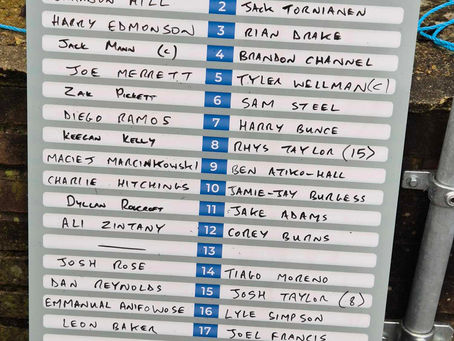 HILL 2 JACK TORNIANEN
HARRY EDMONSON 3 RIAN DRAKE
JACK MANN (C) 4 BRANDON CHANNEL
JOE MERRETT 5 TYLER WELLMAN(C)
ZAK PICKETT 6 SAM STEEL
DIEGO RAMOS 7 HARRY BUNCE
KEEGAN KELLY 8 RHYS TAYLOR (15)
MACIEJ MARCINKOWSKI 9 BEN ATIKO-HALL
CHARLIE HITCHINGS 10 JAMIE-JAY BURGESS
DYLLAN 11 JAKE ADAMS
ALI ZINTANY 12 COREY BURNS
13
JOSH ROSE 14 TIAGO MORENO
DAN REYNOLDS 15 JOSH TAYLOR (8)
EMMANUAL ANIFOWOSE 16 LYLE SIMPSON
LEON BAKER 17 JOEL FRANCIS